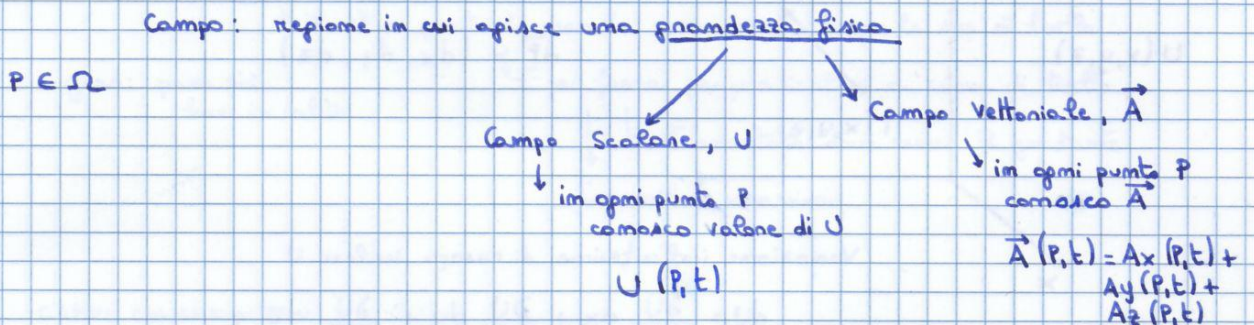 Campo: regione in cui agisce una grandezza fisica
P ∈ Ω
Campo Scalare, U
in ogni punto P
conosco valore di U
U (P,t)
Campo Vettoriale, A⃗
in ogni punto P
conosco A⃗
A⃗ (P,t) = Ax (P,t) +
Ay (P,t) +
Az (P,t)